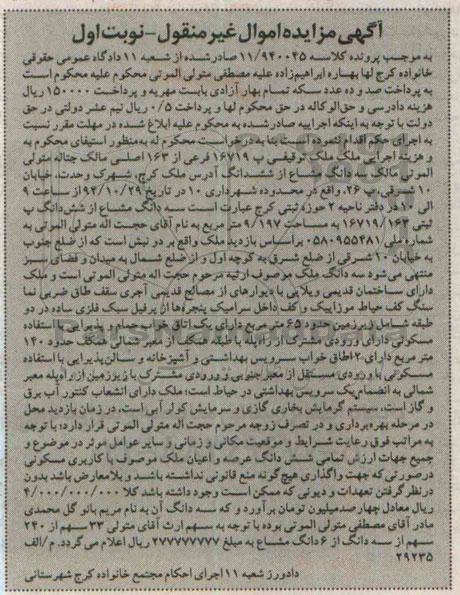 آگهی مزایده اموال غیر منقول - نوبت اول
به موجب پرونده کلاسه ۱۱/۹۴۰۰۴۵ صادر شده از شعبه ۱۱ دادگاه عمومی حقوقی
خانواده کرج لها بهاره ابراهیم زاده علیه مصطفی متولی الموتی محکوم علیه محکوم است
به پرداخت صد و ده عدد سکه تمام بهار آزادی بابت مهریه و پرداخت ۱۵۰۰۰۰ ریال
هزینه دادرسی و حق الوکاله در حق محکوم لها و پرداخت ۰/۵ ریال نیم عشر دولتی در حق
دولت با توجه به اینکه اجراییه صادر شده به محکوم علیه ابلاغ شده در مهلت مقرر نسبت
به اجرای حکم اقدام ننموده است بنا به درخواست محکوم له به منظور استیفای محکوم به
و هزینه اجرایی ملک ملک توقیفی پ ۱۶۷۱۹ فرعی از ۱۶۳ اصلی مالک جناله متولی
الموتی مالکیت سه دانگ مشاع از ششدانگ آدرس ملک کرج، شهرک وحدت، خیابان
۱۰ شرقی، پ ۲۶، واقع در محدوده شهرداری ۱۰ در تاریخ ۹۴/۱۰/۲۹ از ساعت ۹
الی ۱۰ در دفتر ناحیه ۲ حوزه ثبتی کرج عبارت است سه دانگ مشاع از شش دانگ پ
ثبتی ۱۶۷۱۹/۱۶۳ به مساحت ۹/۱۹۷ متر مربع به نام آقای حجت اله متولی الموتی به
شماره ملی ۰۵۸۰۹۵۵۴۸۱ براساس بازدید ملک واقع بر دو نبش است که از ضلع جنوب
به خیابان ۱۰ شرقی از ضلع شرق به کوچه اول و از ضلع شمال به میدان و فضای سبز
منتهی می شود سه دانگ ملک موصوف ارثیه مرحوم حجت اله متولی الموتی است و ملک
دارای ساختمان قدیمی ویلایی با دیوارهای از مصالح قدیمی آجری سقف طاق ضربی نما
سنگ کف حیاط موزاییک و کف داخل سرامیک پنجره ها از پرفیل سبک فلزی ساده در دو
طبقه شامل زیرزمین حدود ۶۵ متر مربع دارای یک اتاق خواب حمام و پذیرایی با استفاده
مسکونی دارای ورودی مشترک از راه پله با طبقه همکف از معبر شمالی همکف حدود ۱۴۰
متر مربع دارای ۲ اطاق خواب سرویس بهداشتی و آشپزخانه و سالن پذیرایی با استفاده
مسکونی با ورودی مستقل از معبر جنوبی و ورودی مشترک با زیرزمین از راه پله معبر
شمالی به انضمام یک سرویس بهداشتی در حیاط است؛ ملک دارای انشعاب کنتور آب برق
و گاز است، سیستم گرمایش بخاری گازی و سرمایش کولر آبی است، در زمان بازدید محل
در مرحله بهره برداری و در تصرف زوجه مرحوم حجت اله متولی الموتی قرار دارد؛ با توجه
به مراتب فوق رعایت شرایط و موقعیت مکانی و زمانی و سایر عوامل موثر در موضوع و
جمیع جهات ارزش تمامی شش دانگ عرصه و اعیان ملک موصوف با کاربری مسکونی
در صورتی که جهت واگذاری هیچ گونه منع قانونی نداشته باشد و بلامعارض باشد بدون
در نظر گرفتن تعهدات و دیونی که ممکن است وجود داشته باشد کلا ۴/۰۰۰/۰۰۰/۰۰۰
ریال معادل چهارصد میلیون تومان برآورد و که سه دانگ آن به نام مریم بانو گل محمدی
مادر آقای مصطفی متولی الموتی بوده با توجه به سهم ارث آقای متولی ۳۳ سهم از ۲۴۰
سهم از سه دانگ از ۶ دانگ مشاع به مبلغ ۲۷۷۷۷۷۷۷۷ ریال اعلام می گردد. م/الف
۲۹۲۳۵
دادورز شعبه ۱۱ اجرای احکام مجتمع خانواده کرج شهرستانی